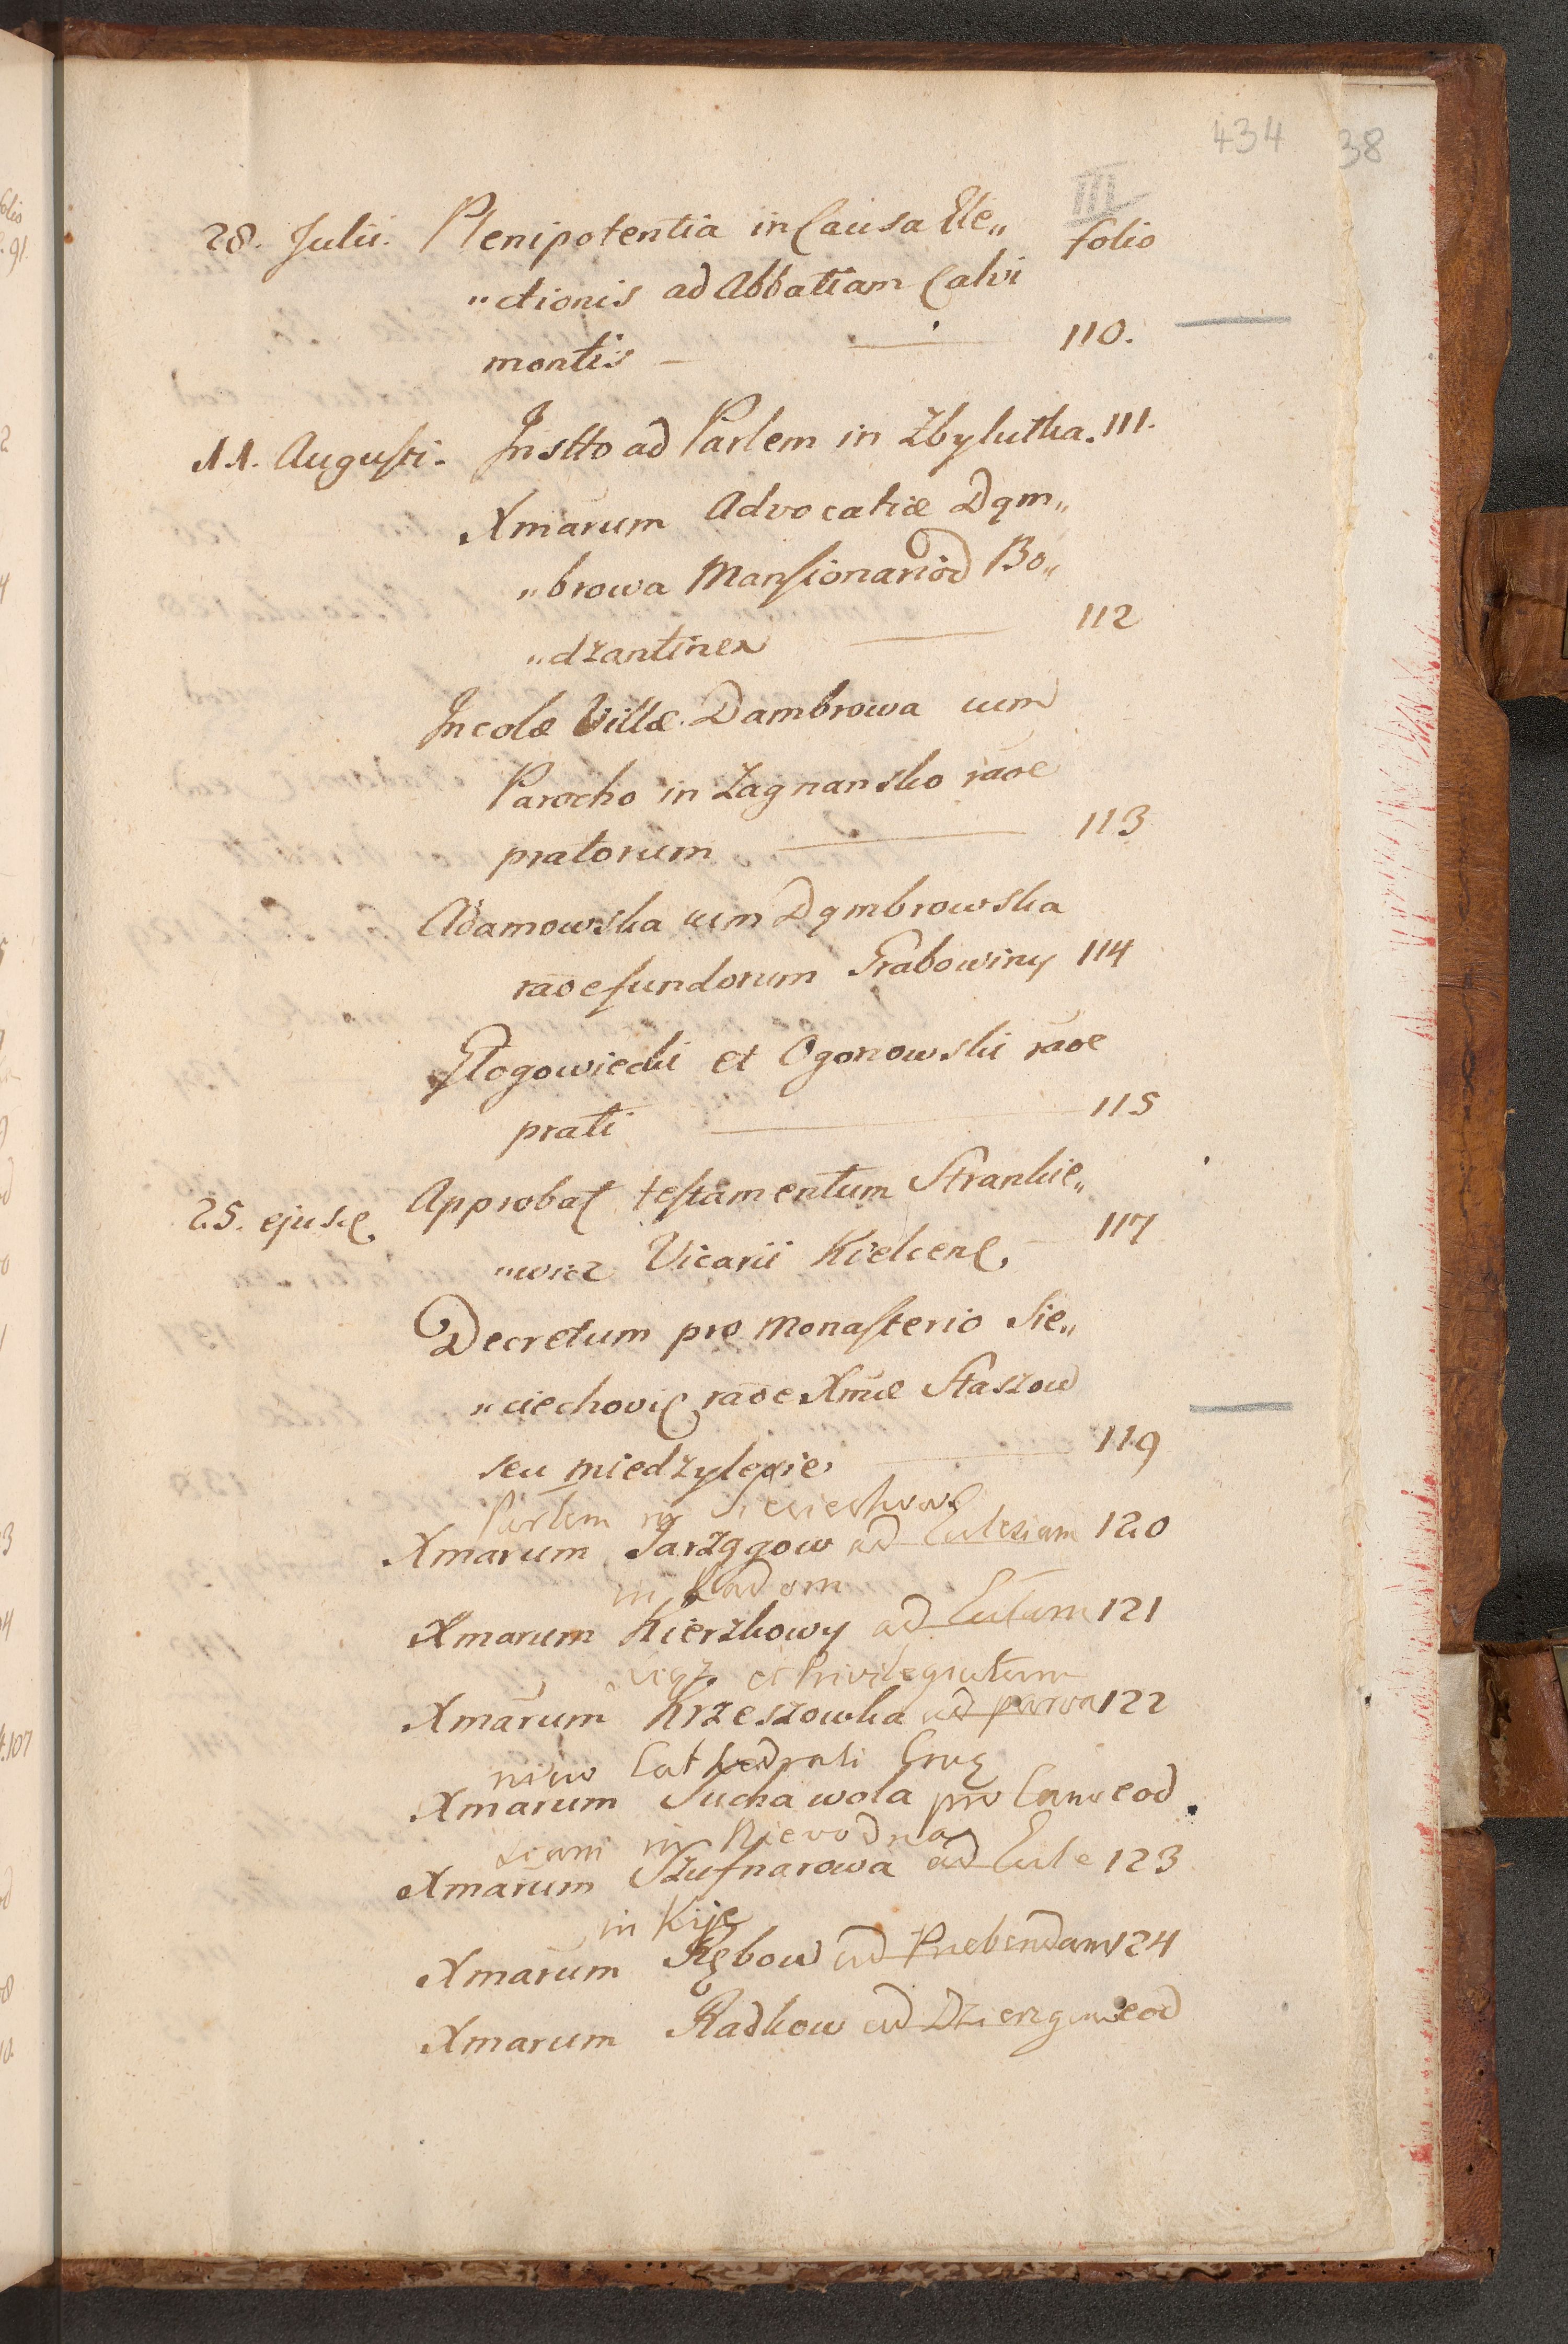 434 38
III
28. Julii. Plenipotentia in Causa Ele„ folio
„ctionis ad Abbatiam Calvi
montis — 110.
11. Augusti. Instto ad Parlem in Zbylutka. 111.
Xmarum Advocatiæ Dąm„
„browa Mansionariod Bo„
„dzantinen 112
Incolæ Villæ Dambrowa cum
Parocho in Zagnansko raoe
pratorum 113
Adamowska cum Dąmbrowska
raoe fundorum Grabowiny 114
Głogowiecki et Ogonowski raoe
prati 115
25. ejusd. Approbat testamentum Frankie„
„wicz Vicarii Kielcen. 117
Decretum pro Monasterio Sie„
„ciechovic raoe Xmæ Staszow
seu miedzylezie 119
Parlem in
Xmarum Jarzągow ad Ecclesiam 120
in Radom
Xmarum Kierzkowy ad 121
et Privilegiatum
Xmarum Krzeszowka ad 122
Cathedrali Crac
Xmarum Suchawola pro eod.
in
Xmarum Szufnarowa ad Eccle 123
in Kije
Xmarum Rębow ad Præbendam 124
Xmarum Radkow ad eod